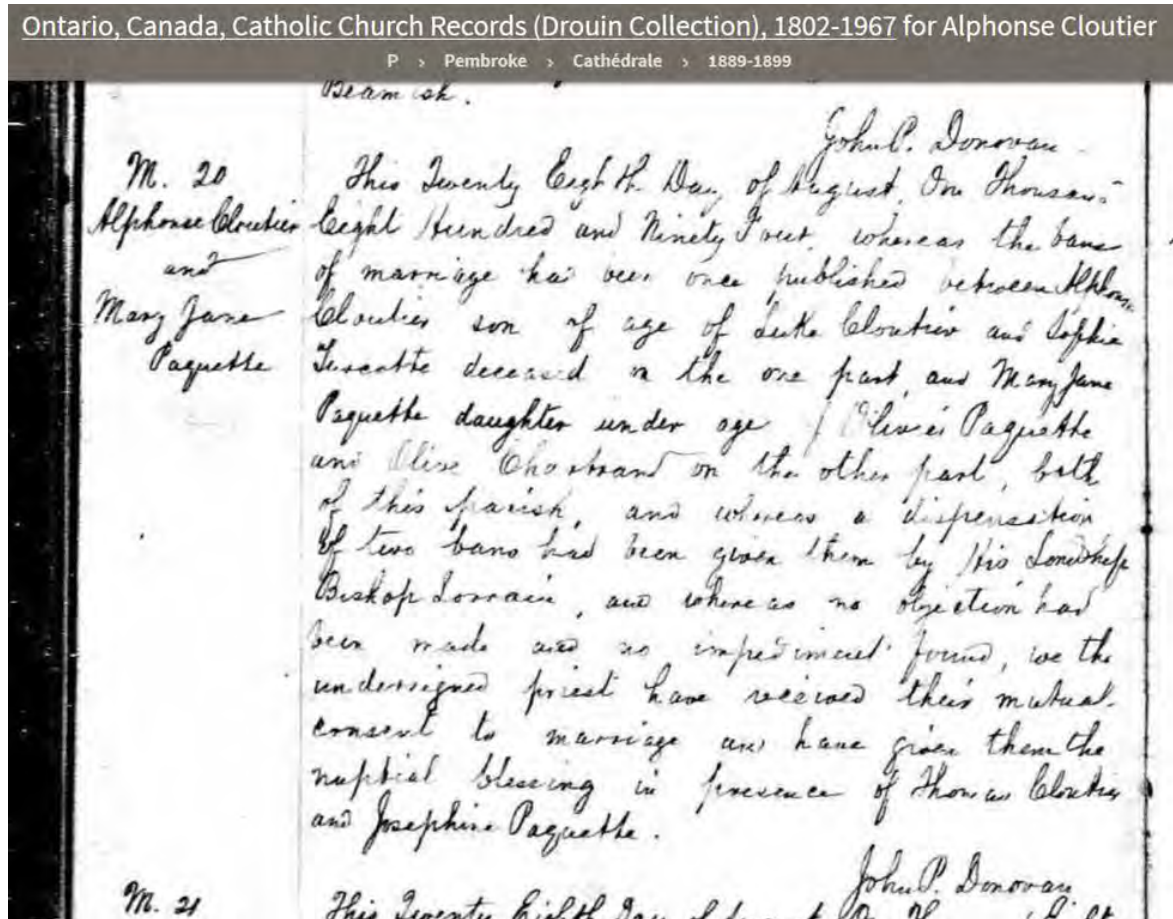 Ontario, Canada, Catholic Church Records (Drouin Collection), 1802-1967 for Alphonse Cloutier
P > Pembroke > Cathédrale > 1889-1899
Beamish.
John P. Donovan
M. 20
Alphonse Cloutier
and
Mary Jane
Paquette
This Twenty Eighth Day of August, One Thousand
Eight Hundred and Ninety Four, whereas the bans
of marriage had been once published between Alphonse
Cloutier son of age of Luke Cloutier and Sophie
Turcotte deceased on the one part, and Mary Jane
Paquette daughter under age of Olivier Paquette
and Olive Chartrand on the other part, both
of this parish, and whereas a dispensation
of two bans had been given them by His Lordship
Bishop Lorrain, and whereas no objection had
been made and no impediment found, we the
undersigned priest have received their mutual
consent to marriage and have given them the
nuptial blessing in presence of Thomas Cloutier
and Josephine Paquette.
John P. Donovan
M. 21
This Twenty Eighth Day of